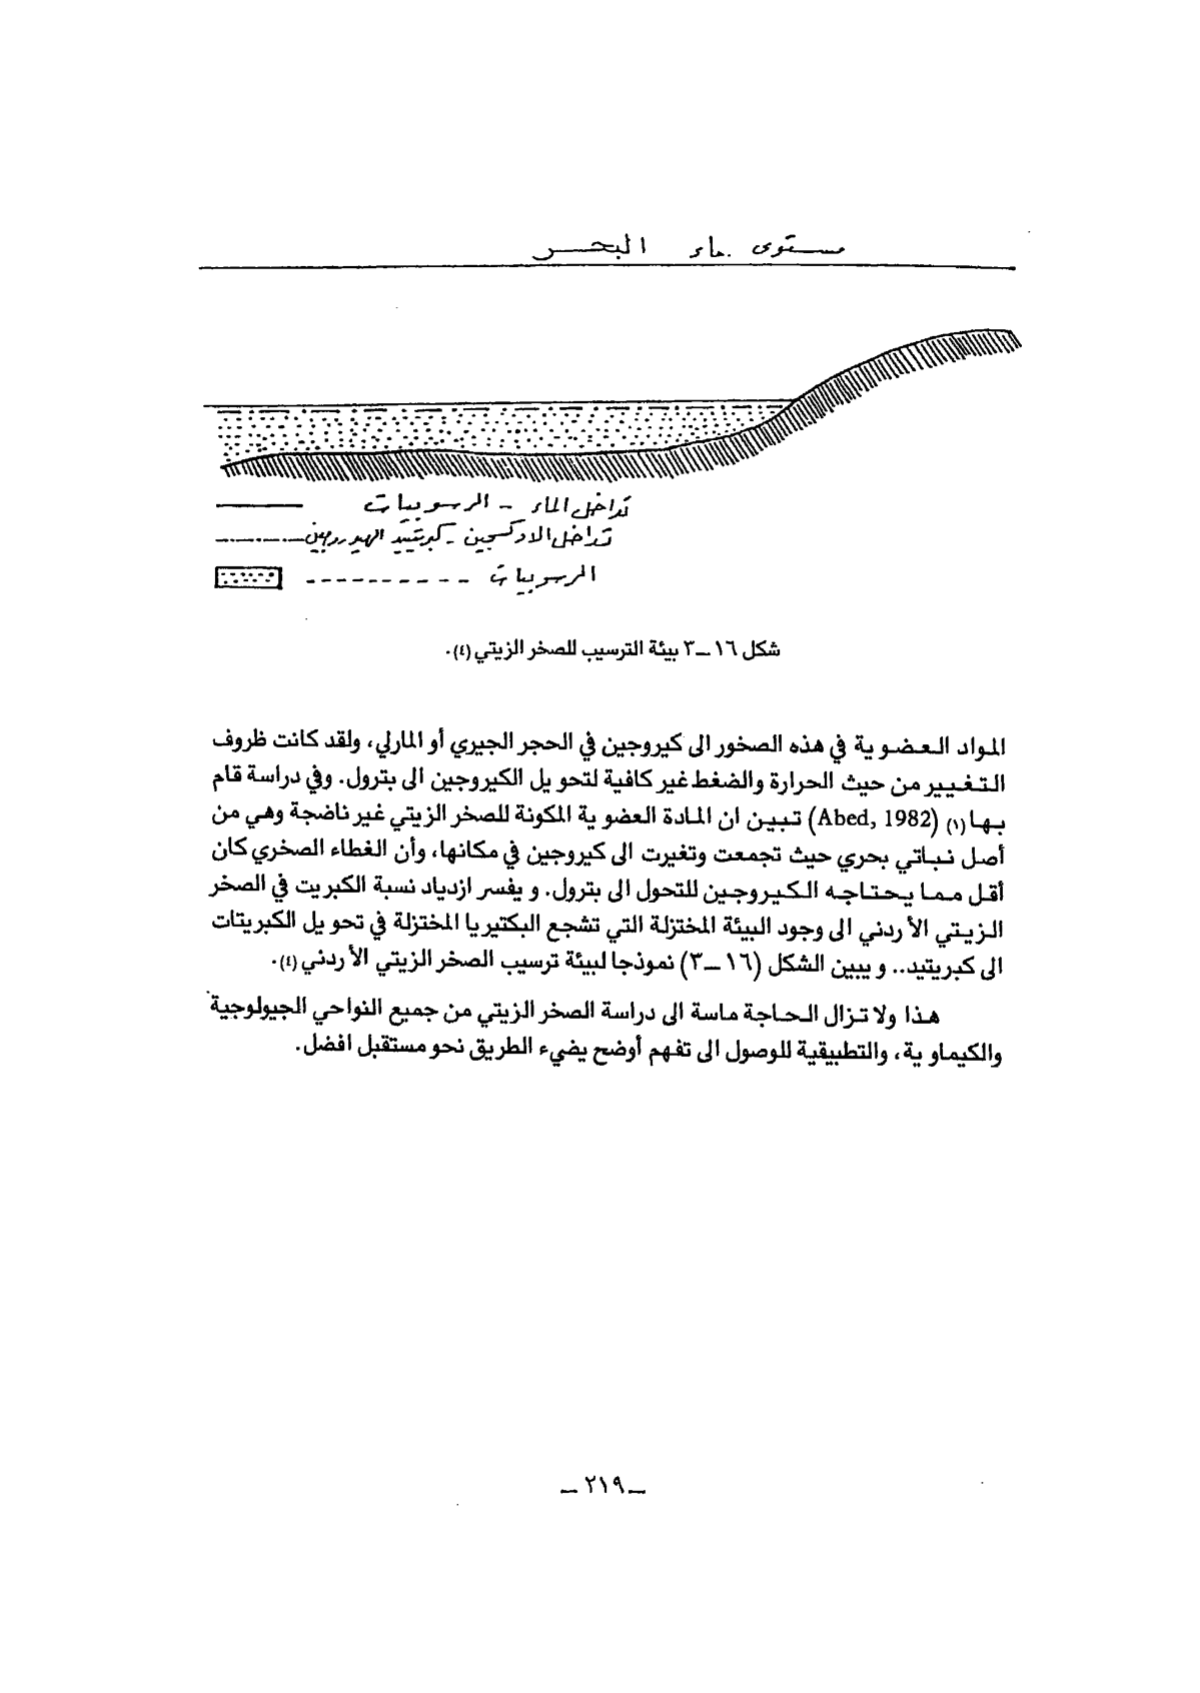 مستوى ماء البحر
تداخل الماء - الرسوبيات
تداخل الاوكسجين - كبرتييد الهيدروجين
الرسوبيات
شكل ١٦ــ٣ بيئة الترسيب للصخر الزيتي (٤).
المواد العضوية في هذه الصخور الى كيروجين في الحجر الجيري أو المارلي، ولقد كانت ظروف
التغيير من حيث الحرارة والضغط غير كافية لتحويل الكيروجين الى بترول. وفي دراسة قام
بها (١) (Abed, 1982) تبين ان المادة العضوية المكونة للصخر الزيتي غير ناضجة وهي من
أصل نباتي بحري حيث تجمعت وتغيرت الى كيروجين في مكانها، وأن الغطاء الصخري كان
أقل مما يحتاجه الكيروجين للتحول الى بترول. ويفسر ازدياد نسبة الكبريت في الصخر
الزيتي الأردني الى وجود البيئة المختزلة التي تشجع البكتيريا المختزلة في تحويل الكبريتات
الى كبريتيد.. ويبين الشكل (١٦ــ٣) نموذجا لبيئة ترسيب الصخر الزيتي الأردني (٤).
هذا ولا تزال الحاجة ماسة الى دراسة الصخر الزيتي من جميع النواحي الجيولوجية
والكيماوية، والتطبيقية للوصول الى تفهم أوضح يضيء الطريق نحو مستقبل افضل.
ــ ٢١٩ ــ